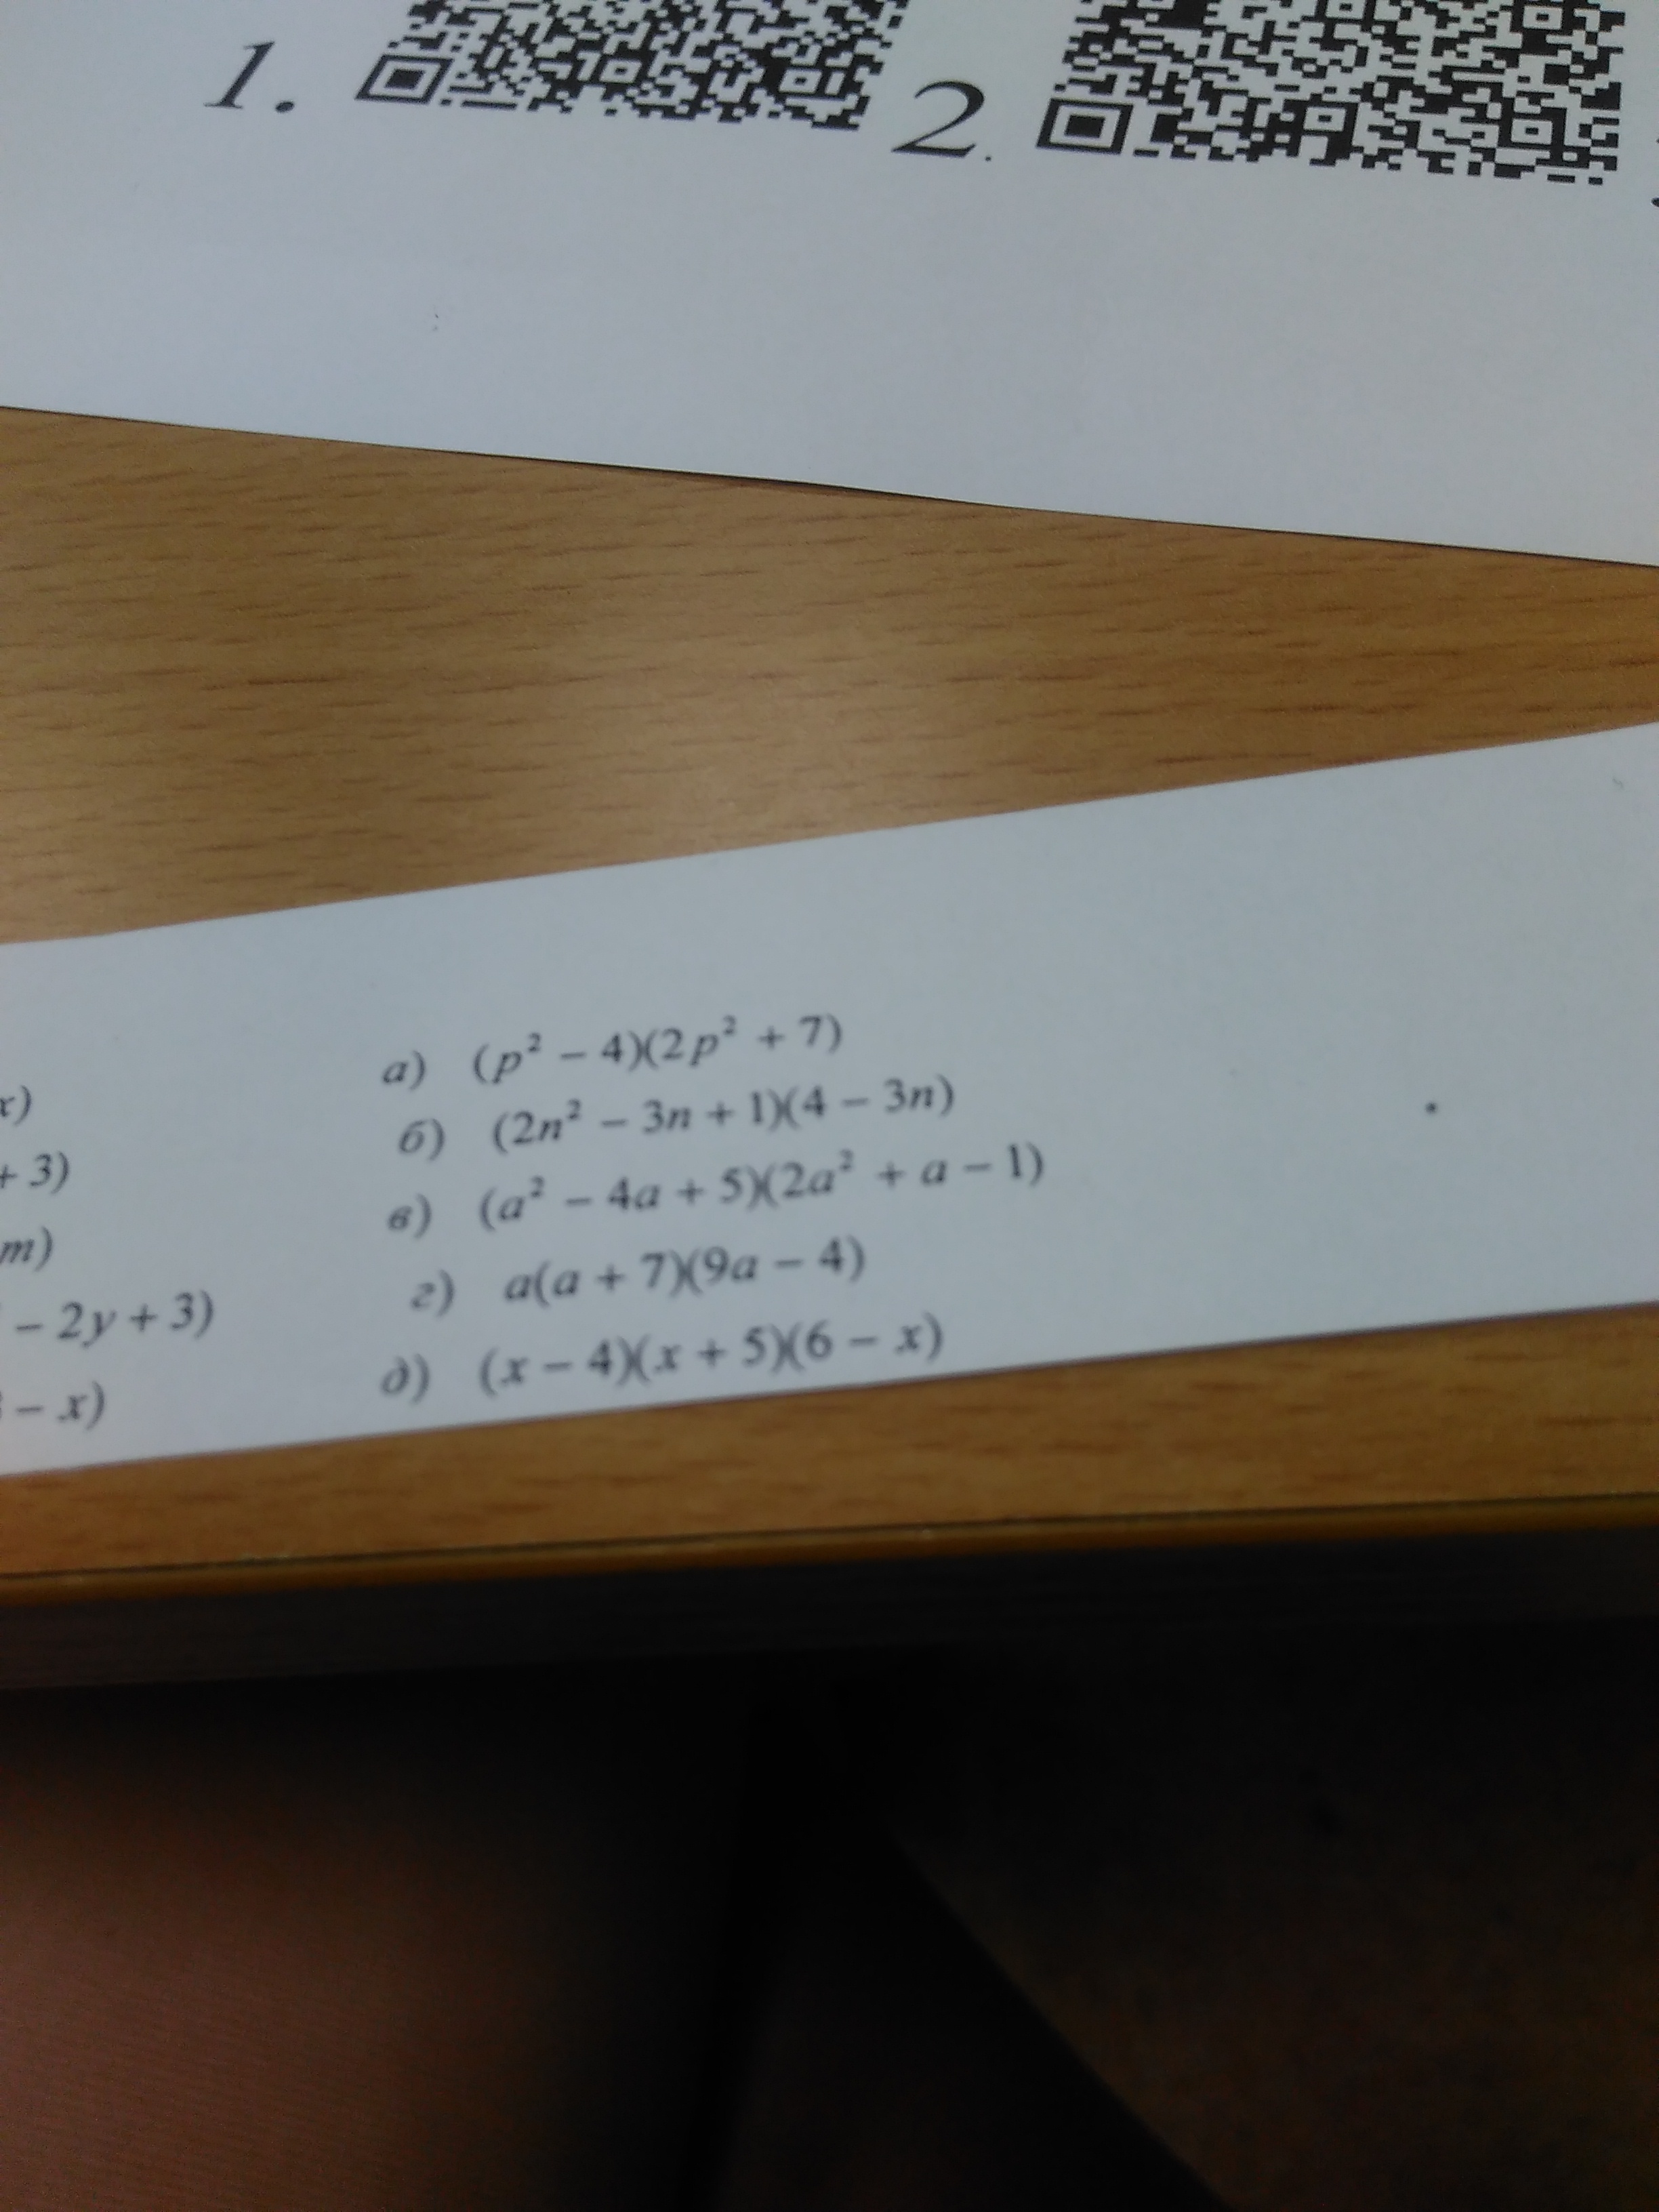 1. 2.
x)
+ 3)
m)
- 2y + 3)
- x)
а) (p² - 4)(2p² + 7)
б) (2n² - 3n + 1)(4 - 3n)
в) (a² - 4a + 5)(2a² + a - 1)
г) a(a + 7)(9a - 4)
д) (x - 4)(x + 5)(6 - x)